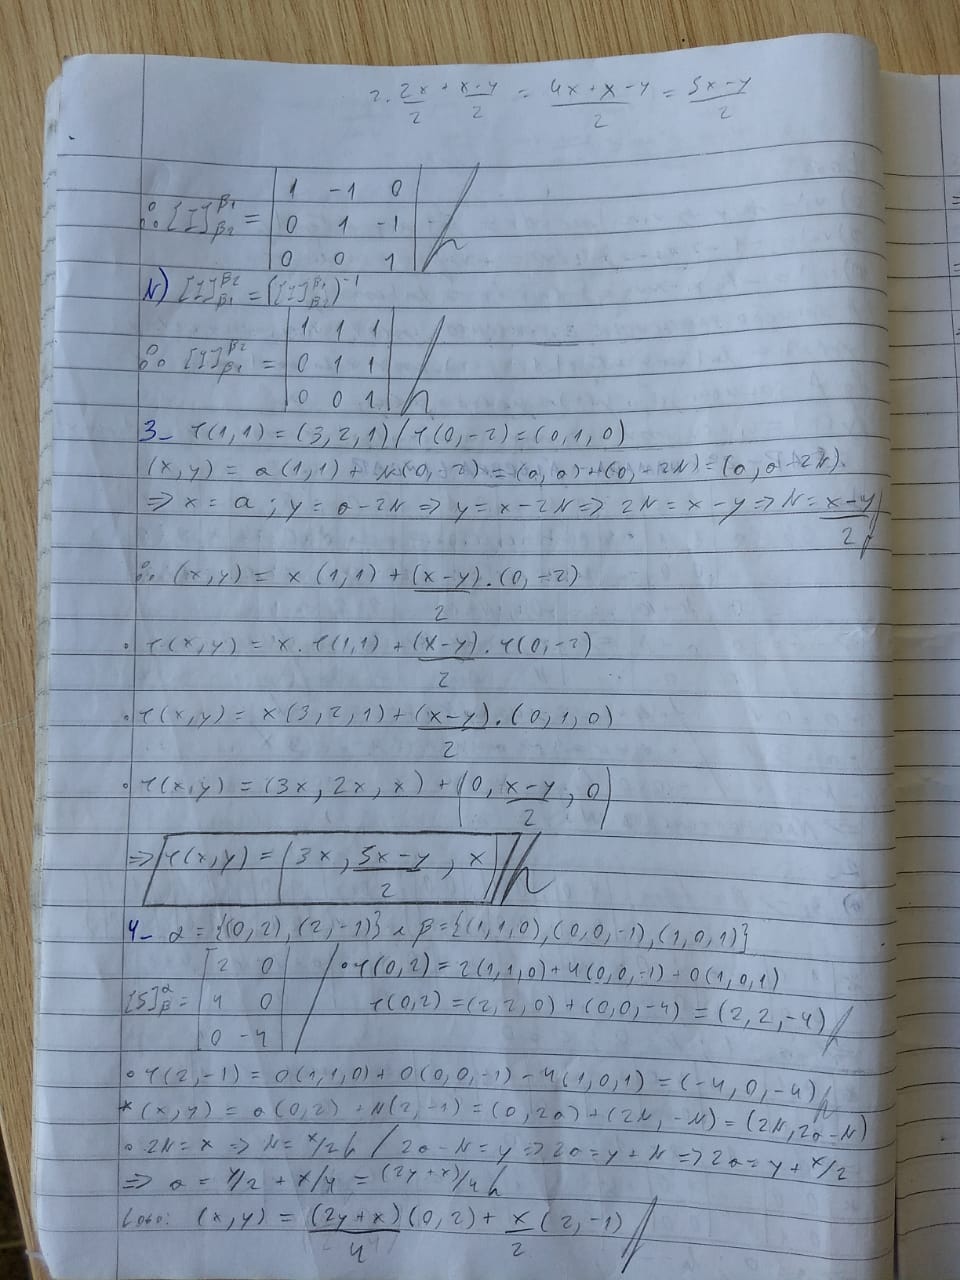 2. 2x/2 + x-y/2 = 4x+x-y/2 = 5x-y/2
∴ [I]^β1_β2 =
1 -1 0
0 1 -1
0 0 1
b) [I]^β2_β1 = ([I]^β1_β2)^-1
∴ [I]^β2_β1 =
1 1 1
0 1 1
0 0 1
3- T(1,1) = (3,2,1) / T(0,-2) = (0,1,0)
(x,y) = a(1,1) + b(0,-2) = (a,a)+(0,-2b) = (a, a-2b).
⇒ x = a ; y = a-2b ⇒ y = x-2b ⇒ 2b = x-y ⇒ b = x-y/2
∴ (x,y) = x(1,1) + (x-y)/2 . (0,-2)
• T(x,y) = x. T(1,1) + (x-y)/2 . T(0,-2)
• T(x,y) = x(3,2,1) + (x-y)/2 . (0,1,0)
• T(x,y) = (3x, 2x, x) + (0, x-y/2, 0)
⇒ T(x,y) = (3x, 5x-y/2, x)
4- α = {(0,2),(2,-1)} e β = {(1,1,0),(0,0,-1),(1,0,1)}
[S]^α_β =
2 0
4 0
0 -4
• T(0,2) = 2(1,1,0)+4(0,0,-1)+0(1,0,1)
T(0,2) = (2,2,0)+(0,0,-4) = (2,2,-4)
• T(2,-1) = 0(1,1,0) + 0(0,0,-1) - 4(1,0,1) = (-4,0,-4)
* (x,y) = a(0,2) + b(2,-1) = (0,2a)+(2b,-b) = (2b,2a-b)
• 2b = x ⇒ b = x/2 / 2a-b = y ⇒ 2a = y+b ⇒ 2a = y + x/2
⇒ a = y/2 + x/4 = (2y+x)/4
Logo: (x,y) = (2y+x)/4 (0,2) + x/2 (2,-1)